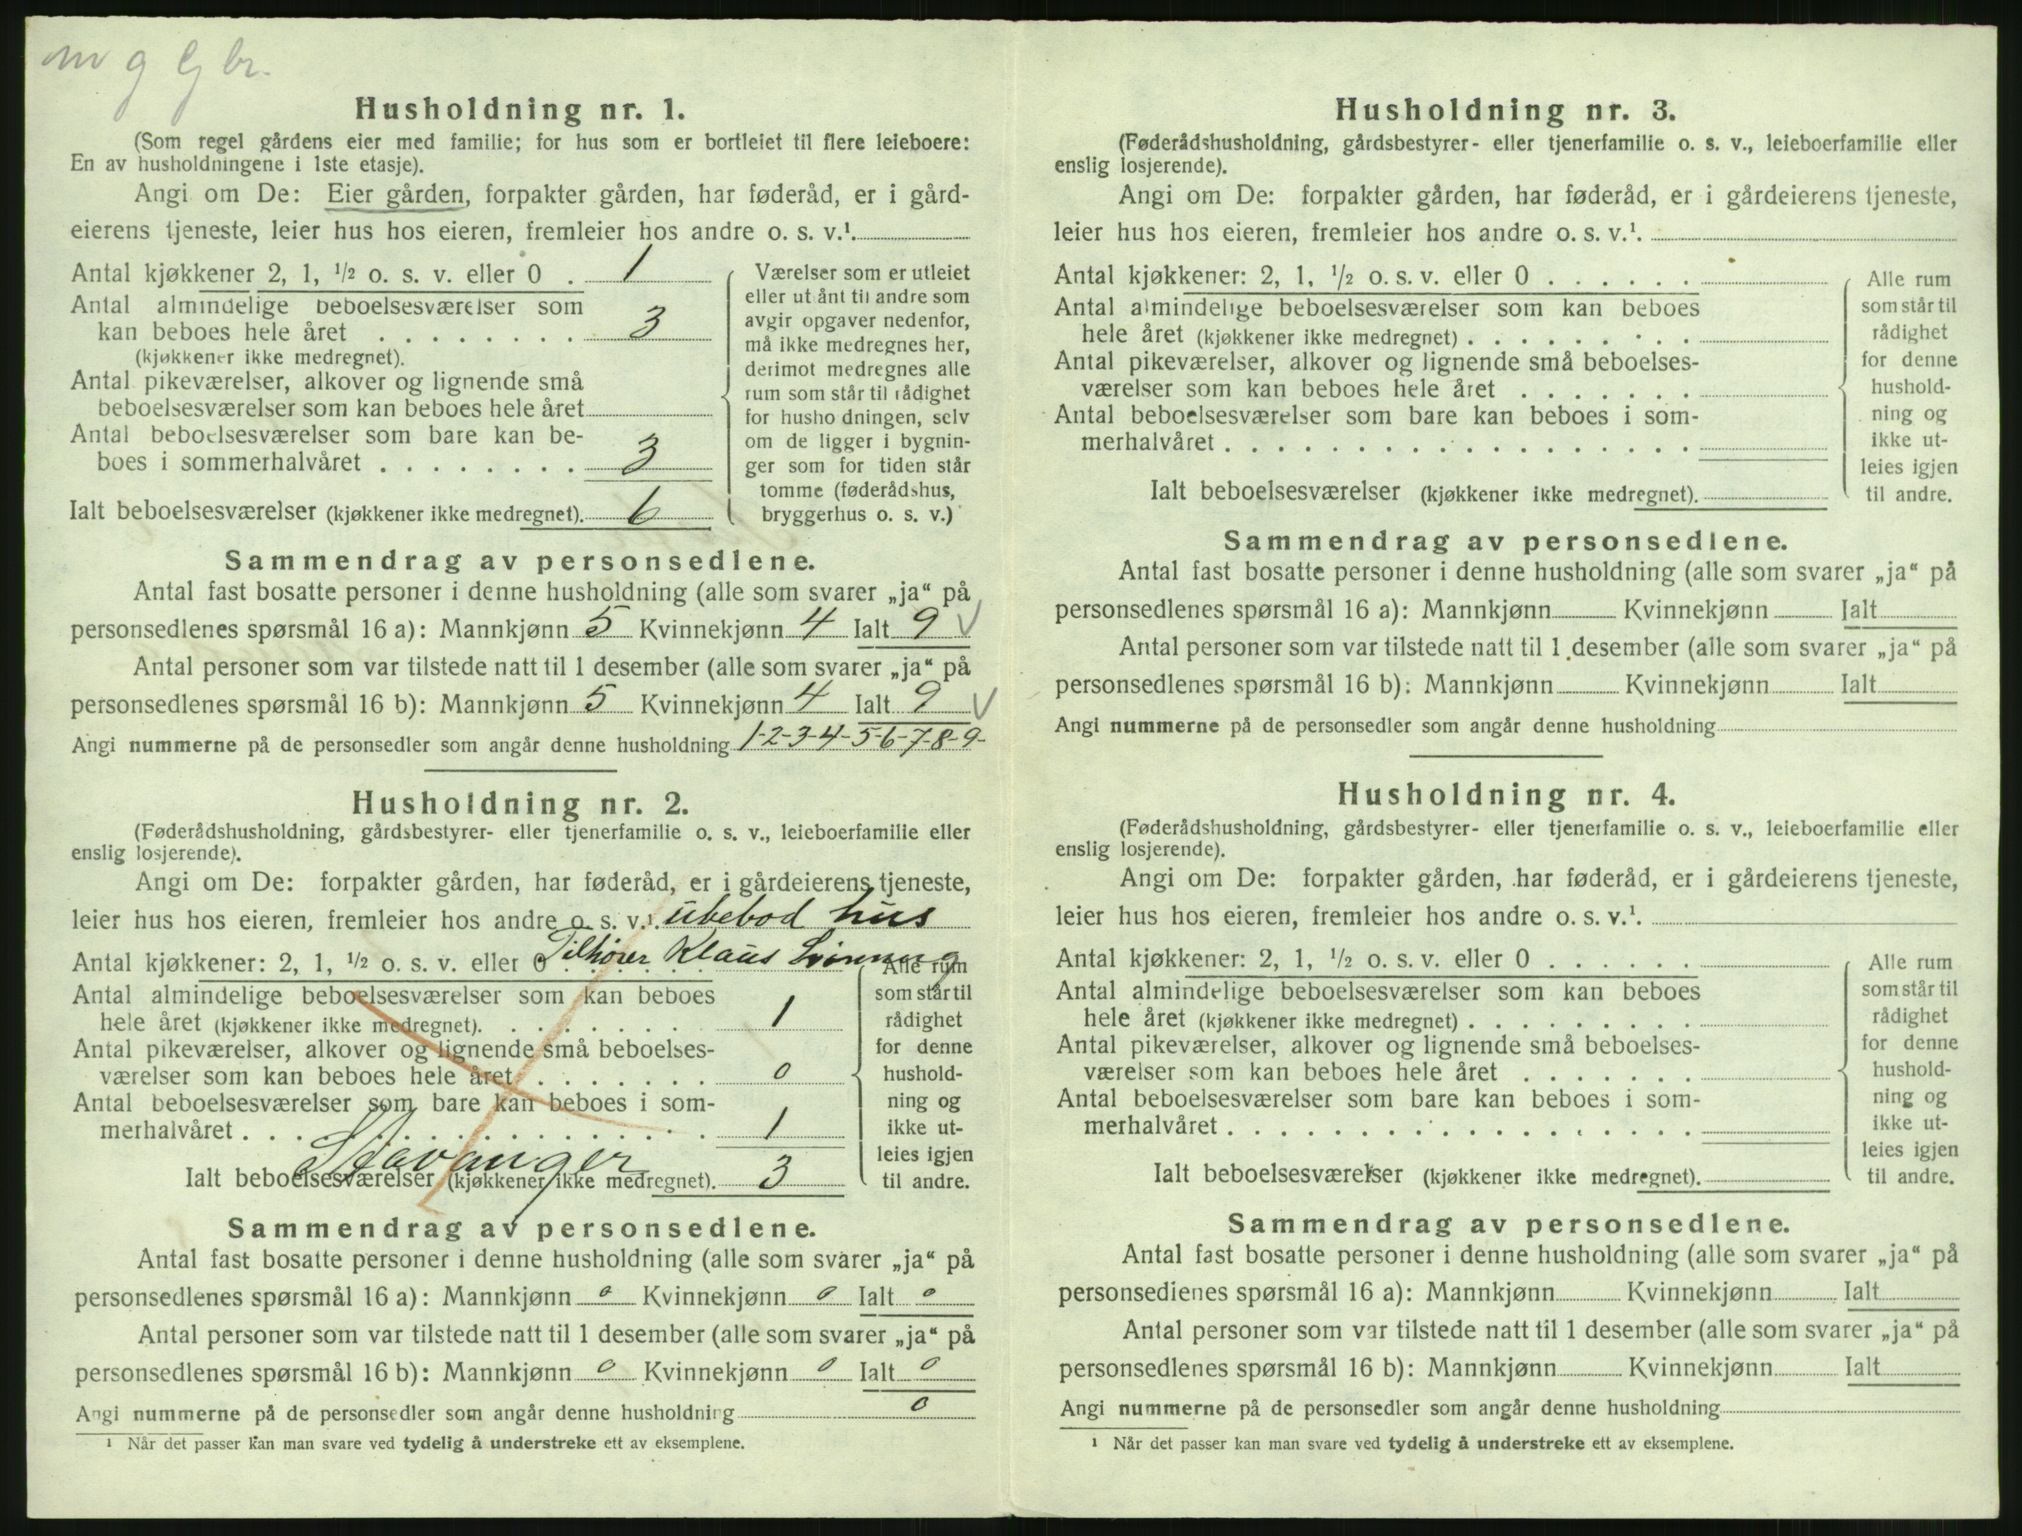 m g G br.
Husholdning nr. 1.
(Som regel gårdens eier med familie; for hus som er bortleiet til flere leieboere:
En av husholdningene i 1ste etasje).
Angi om De: Eier gården, forpakter gården, har føderåd, er i gård-
eierens tjeneste, leier hus hos eieren, fremleier hos andre o. s. v.¹.
Antal kjøkkener 2, 1, ½ o. s. v. eller 0 . 1
Antal almindelige beboelsesværelser som
kan beboes hele året . . . . . . . . 3
(kjøkkener ikke medregnet).
Antal pikeværelser, alkover og lignende små
beboelsesværelser som kan beboes hele året
Antal beboelsesværelser som bare kan be-
boes i sommerhalvåret . . . . . . . 3
Ialt beboelsesværelser (kjøkkener ikke medregnet). 6
Værelser som er utleiet
eller utlånt til andre som
avgir opgaver nedenfor,
må ikke medregnes her,
derimot medregnes alle
rum som står til rådighet
for husholdningen, selv
om de ligger i bygnin-
ger som for tiden står
tomme (føderådshus,
bryggerhus o. s. v.)
Sammendrag av personsedlene.
Antal fast bosatte personer i denne husholdning (alle som svarer „ja“ på
personsedlenes spørsmål 16 a): Mannkjønn 5 Kvinnekjønn 4 Ialt 9 V
Antal personer som var tilstede natt til 1 desember (alle som svarer „ja“ på
personsedlenes spørsmål 16 b): Mannkjønn 5 Kvinnekjønn 4 Ialt 9 V
Angi nummerne på de personsedler som angår denne husholdning 1-2-3-4-5-6-7-8-9-
Husholdning nr. 2.
(Føderådshusholdning, gårdsbestyrer- eller tjenerfamilie o. s. v., leieboerfamilie eller
enslig losjerende).
Angi om De: forpakter gården, har føderåd, er i gårdeierens tjeneste,
leier hus hos eieren, fremleier hos andre o. s. v.¹. ubebod hus
Tilhører Klaus
Antal kjøkkener: 2, 1, ½ o. s. v. eller 0 . . . . . .
Antal almindelige beboelsesværelser som kan beboes
hele året (kjøkkener ikke medregnet). . . . . . . . . 1
Antal pikeværelser, alkover og lignende små beboelses-
værelser som kan beboes hele året . . . . . . . 0
Antal beboelsesværelser som bare kan beboes i som-
merhalvåret . . . . . . . . . . . . . . . . . . 1
Stavanger
Ialt beboelsesværelser (kjøkkener ikke medregnet). 3
Alle rum
som står til
rådighet
for denne
hushold-
ning og
ikke ut-
leies igjen
til andre.
Sammendrag av personsedlene.
Antal fast bosatte personer i denne husholdning (alle som svarer „ja“ på
personsedlenes spørsmål 16 a): Mannkjønn 0 Kvinnekjønn 0 Ialt 0
Antal personer som var tilstede natt til 1 desember (alle som svarer „ja“ på
personsedlenes spørsmål 16 b): Mannkjønn 0 Kvinnekjønn 0 Ialt 0
Angi nummerne på de personsedler som angår denne husholdning 0
¹ Når det passer kan man svare ved tydelig å understreke ett av eksemplene.
Husholdning nr. 3.
(Føderådshusholdning, gårdsbestyrer- eller tjenerfamilie o. s. v., leieboerfamilie eller
enslig losjerende).
Angi om De: forpakter gården, har føderåd, er i gårdeierens tjeneste,
leier hus hos eieren, fremleier hos andre o. s. v.¹.
Antal kjøkkener: 2, 1, ½ o. s. v. eller 0 . . . . . .
Antal almindelige beboelsesværelser som kan beboes
hele året (kjøkkener ikke medregnet) . . . . . . . . .
Antal pikeværelser, alkover og lignende små beboelses-
værelser som kan beboes hele året . . . . . . .
Antal beboelsesværelser som bare kan beboes i som-
merhalvåret . . . . . . . . . . . . . . . . . .
Ialt beboelsesværelser (kjøkkener ikke medregnet).
Alle rum
som står til
rådighet
for denne
hushold-
ning og
ikke ut-
leies igjen
til andre.
Sammendrag av personsedlene.
Antal fast bosatte personer i denne husholdning (alle som svarer „ja“ på
personsedlenes spørsmål 16 a): Mannkjønn Kvinnekjønn Ialt
Antal personer som var tilstede natt til 1 desember (alle som svarer „ja“ på
personsedlenes spørsmål 16 b): Mannkjønn Kvinnekjønn Ialt
Angi nummerne på de personsedler som angår denne husholdning
Husholdning nr. 4.
(Føderådshusholdning, gårdsbestyrer- eller tjenerfamilie o. s. v., leieboerfamilie eller
enslig losjerende).
Angi om De: forpakter gården, har føderåd, er i gårdeierens tjeneste,
leier hus hos eieren, fremleier hos andre o. s. v.¹.
Antal kjøkkener: 2, 1, ½ o. s. v. eller 0 . . . . . .
Antal almindelige beboelsesværelser som kan beboes
hele året (kjøkkener ikke medregnet) . . . . . . . . .
Antal pikeværelser, alkover og lignende små beboelses-
værelser som kan beboes hele året . . . . . . .
Antal beboelsesværelser som bare kan beboes i som-
merhalvåret . . . . . . . . . . . . . . . . . .
Ialt beboelsesværelser (kjøkkener ikke medregnet).
Alle rum
som står til
rådighet
for denne
hushold-
ning og
ikke ut-
leies igjen
til andre.
Sammendrag av personsedlene.
Antal fast bosatte personer i denne husholdning (alle som svarer „ja“ på
personsedlenes spørsmål 16 a): Mannkjønn Kvinnekjønn Ialt
Antal personer som var tilstede natt til 1 desember (alle som svarer „ja“ på
personsedlenes spørsmål 16 b): Mannkjønn Kvinnekjønn Ialt
Angi nummerne på de personsedler som angår denne husholdning
¹ Når det passer kan man svare ved tydelig å understreke ett av eksemplene.